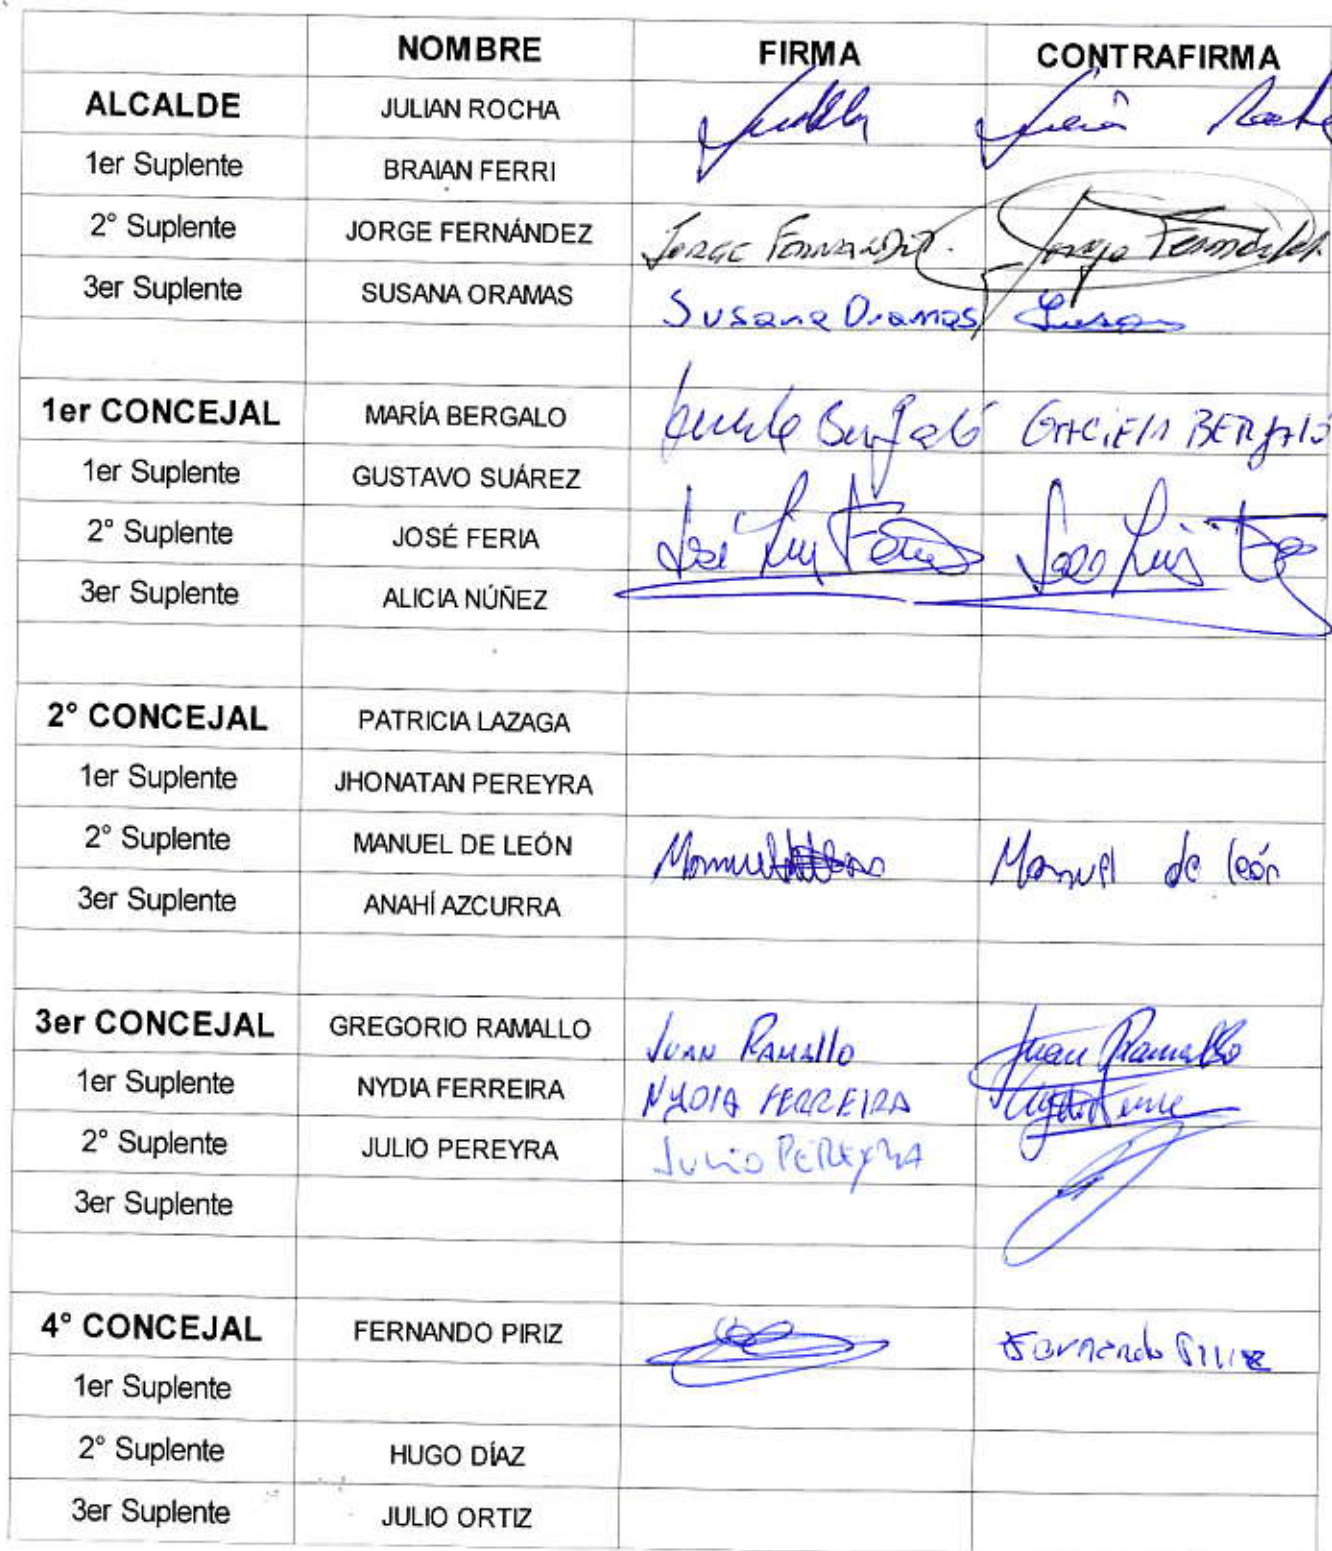 NOMBRE FIRMA CONTRAFIRMA
ALCALDE JULIAN ROCHA
1er Suplente BRAIAN FERRI
2° Suplente JORGE FERNÁNDEZ Jorge Fernandez.
3er Suplente SUSANA ORAMAS Susana Oramas Susana
1er CONCEJAL MARÍA BERGALO Bergaló GRACIELA BERGALÓ
1er Suplente GUSTAVO SUÁREZ
2° Suplente JOSÉ FERIA José Luis Feria José Luis
3er Suplente ALICIA NÚÑEZ
2° CONCEJAL PATRICIA LAZAGA
1er Suplente JHONATAN PEREYRA
2° Suplente MANUEL DE LEÓN Manuel Manuel de león
3er Suplente ANAHÍ AZCURRA
3er CONCEJAL GREGORIO RAMALLO JUAN RAMALLO Juan Ramallo
1er Suplente NYDIA FERREIRA NYDIA FERREIRA
2° Suplente JULIO PEREYRA JULIO PEREYRA
3er Suplente
4° CONCEJAL FERNANDO PIRIZ Fernando Piriz
1er Suplente
2° Suplente HUGO DÍAZ
3er Suplente JULIO ORTIZ